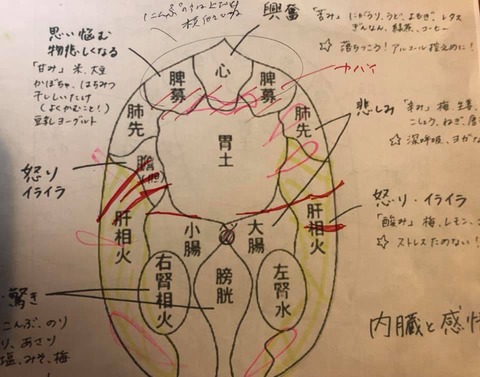 興奮
「苦み」にがうり、うど、よもぎ、レタス
ぎんなん、緑茶、コーヒー
☆ 落ちつこう！アルコール控えめに！
思い悩む
物悲しくなる
「甘み」米、大豆
かぼちゃ、はちみつ
干ししいたけ
(よくかむこと！)
豆乳ヨーグルト
ヤバイ
心
脾募
脾募
肺先
肺先
胃土
悲しみ
「辛み」梅、生姜、
こしょう、ねぎ、
☆ 深呼吸、ヨガ
怒り
イライラ
胆
肝相火
肝相火
怒り・イライラ
「酸み」梅、レモン、
☆ ストレスためない！
小腸
大腸
右腎相火
膀胱
左腎水
驚き
こんぶ、のり
り、あさり
塩、みそ、梅
内臓と感情